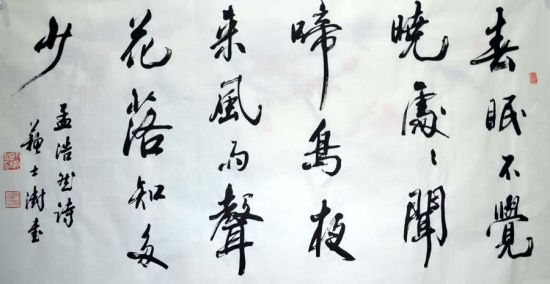 春眠不覺
曉處〻聞
啼鳥夜
來風雨聲
花落知多
少
孟浩然詩
蘇士澍書